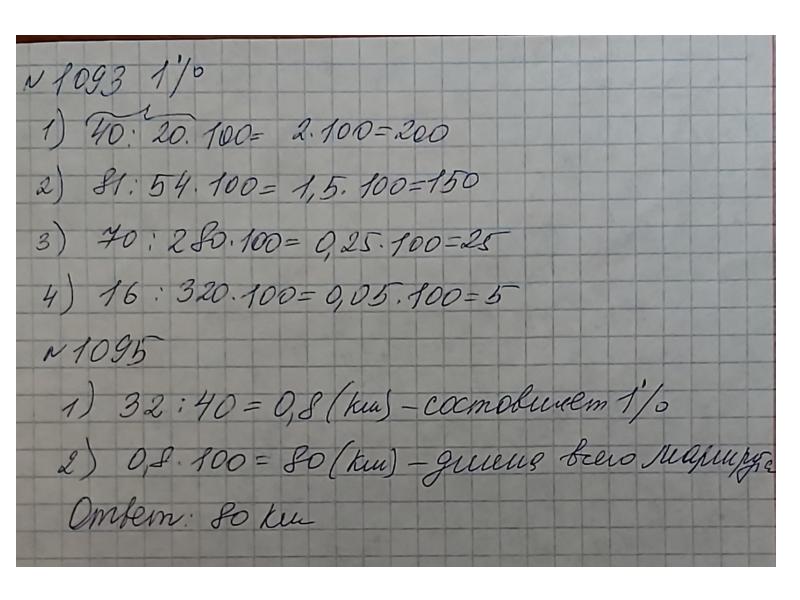 № 1093 1%
1) 40 : 20 · 100 = 2 · 100 = 200
2) 81 : 54 · 100 = 1,5 · 100 = 150
3) 70 : 280 · 100 = 0,25 · 100 = 25
4) 16 : 320 · 100 = 0,05 · 100 = 5
№ 1095
1) 32 : 40 = 0,8 (км) – составляет 1%
2) 0,8 · 100 = 80 (км) – длина всего маршрута
Ответ: 80 км